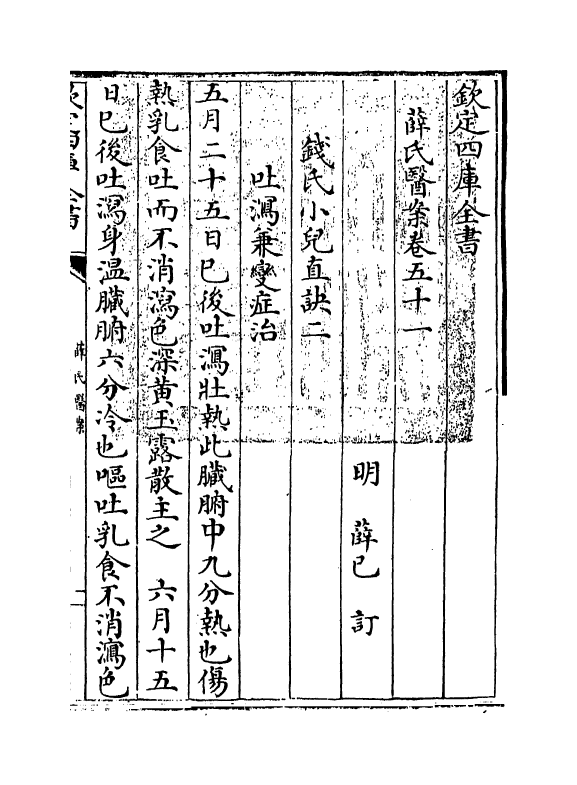 欽定四庫全書
薛氏醫案卷五十一
明 薛已 訂
錢氏小兒直訣二
吐瀉兼變症治
五月二十五日已後吐瀉壯熱此臓腑中九分熱也傷
熱乳食吐而不消瀉色深黄玉露散主之 六月十五
日已後吐瀉身温臓腑六分冷也嘔吐乳食不消瀉色
薛氏醫案